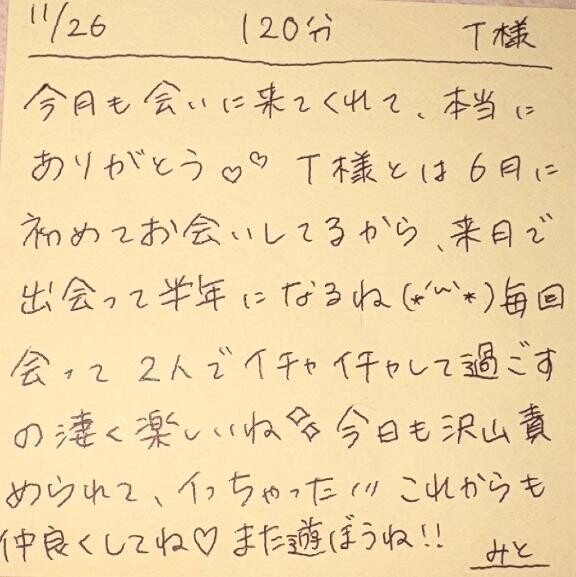 11/26 120分 T様
今月も会いに来てくれて、本当に
ありがとう♡♡ T様とは6月に
初めてお会いしてるから、来月で
出会って半年になるね(*´꒳`*)毎回
会って2人でイチャイチャして過ごす
の凄く楽しいね✧ 今日も沢山責
められて、イっちゃった/// これからも
仲良くしてね♡また遊ぼうね!!
みと